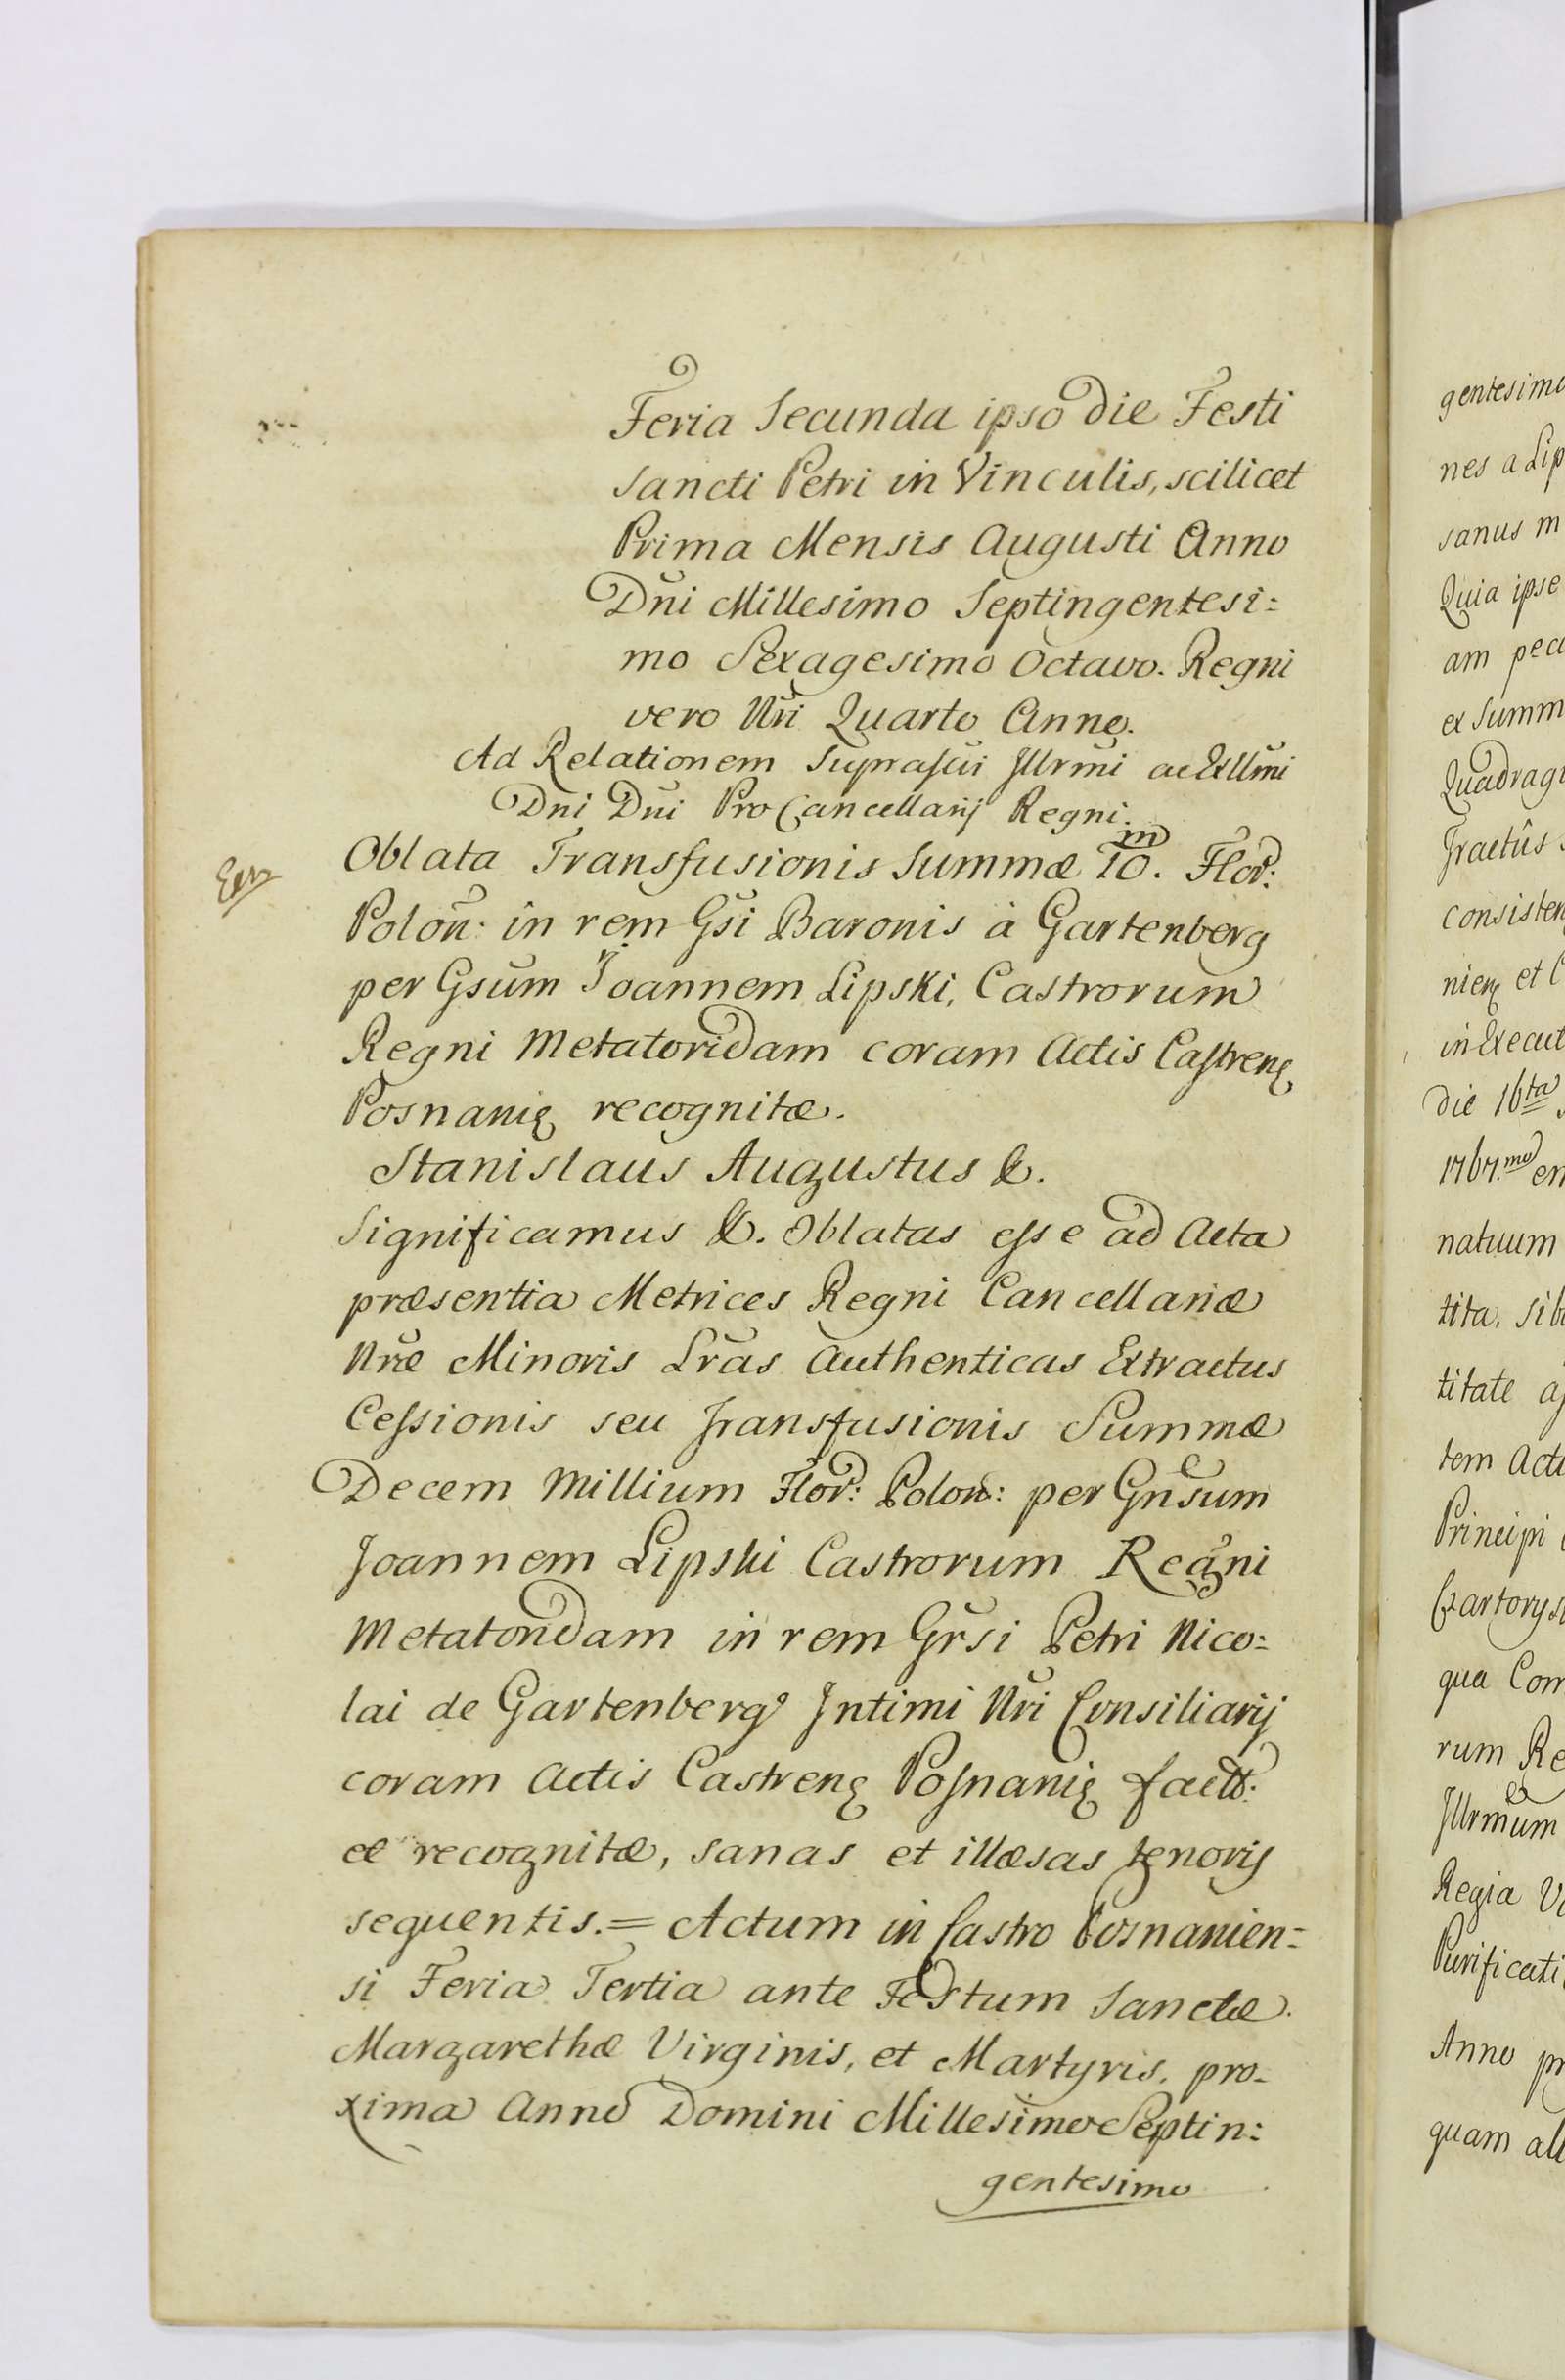 Feria Secunda ipso die Festi
Sancti Petri in Vinculis, scilicet
Prima Mensis Augusti Anno
Dni Millesimo Septingentesi=
mo Sexagesimo Octavo. Regni
vero Nri Quarto Anno.
Ad Relationem Suprascri Illrmi ac Exllmi
Dni Dni ProCancellarij Regni.
Oblata Transfusionis Summæ 10.m Flor:
Polon: in rem Gsi Baronis à Gartenberg
per Gsum Joannem Lipski, Castrorum
Regni Metatoridam coram Actis Castrenę
Posnanię recognitæ.
Stanislaus Augustus &.
Significamus &. Oblatas esse ad Acta
præsentia Metrices Regni Cancellariæ
Nræ Minoris Lras Authenticas Extractus
Cessionis seu Transfusionis Summæ
Decem Millium Flor: Polon: per Gnsum
Joannem Lipski Castrorum Regni
Metatoridam in rem Grsi Petri Nico=
lai de Gartenberg Intimi Nri Consiliarij
coram Actis Castrenę Posnanię fact:
æ recognitæ, sanas et illæsas tenoris
sequentis.= Actum in Castro Posnanien=
si Feria Tertia ante Festum Sanctæ
Margarethæ Virginis, et Martyris, pro-
xima Anno Domini Millesimo Septin:
gentesimo
gentesimo
nes a Lip
sanus m
Quia ipse
am pec
ex Summ
Quadragi
Tractûs
consisten
nienę et C
in Execut
die 16ta
1767.mo en
natuum
tita, sib
titate
tem Act
Principi
Czartorys
qua Com
rum Re
Illrmum
Regia V
Purificati
Anno pr
quam ali